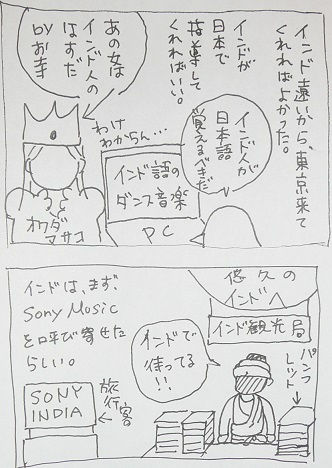 インド遠いから、東京来て
くれればよかった。
インドが
日本で
指導して
くれればいい。
あの女は
インド人の
はずだ
byお寺
わけ
わからん…
インド人が
日本語
覚えるべきだ
インド語の
ダンス音楽
PC
オワダ
マサコ
悠久の
インドへ
インド観光局
インドは、まず、
Sony Music
を呼び寄せた
らしい。
インドで
待ってる
!!
パンフ
レット
旅行客
SONY
INDIA